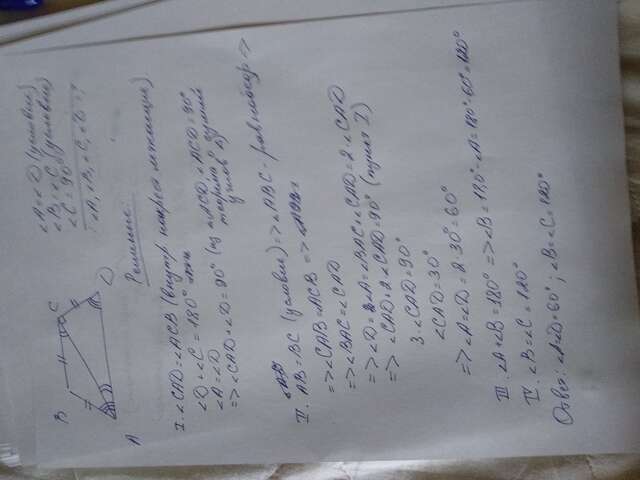 B C
A D
∠A=∠D (условие)
∠B=∠C (условие)
∠C=90°
∠A, ∠B, ∠C, ∠D=?
Решение:
I. ∠CAD=∠ACB (внутр накрест лежащие).
∠D+∠C=180°
∠A=∠D
=> ∠CAD+∠D=90° (из △ACD, ∠ACD=90°
теорема о сумме
углов △)
II. AB=BC (условие)=>∠ABC-равнобедр=>
=>∠CAB=∠ACB =>
=>∠BAC=∠CAD
=>∠D=∠A=∠BAC+∠CAD=2·∠CAD
=> ∠CAD+2·∠CAD=90° (пункт I)
3·∠CAD=90°
∠CAD=30°
=>∠A=∠D=2·30°=60°
III. ∠A+∠B=180° =>∠B=180°-∠A=180°-60°=120°
IV. ∠B=∠C=120°
Ответ: ∠A=∠D=60°; ∠B=∠C=120°